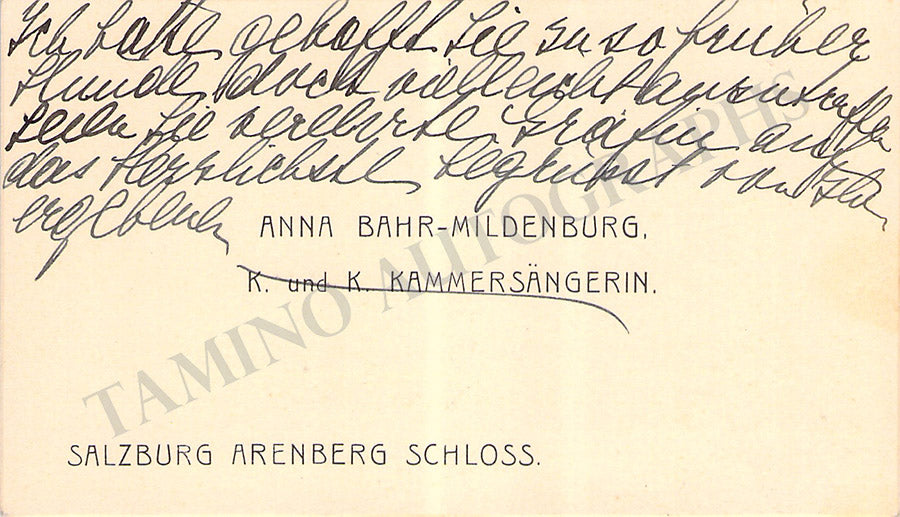 Ich hatte gehofft Sie zu so früher
Stunde doch vielleicht anzutreffen
seien Sie verehrte Gräfin auf
das Herzlichste begrüsst von Ihrer
ergebenen
ANNA BAHR-MILDENBURG,
K. und K. KAMMERSÄNGERIN.
SALZBURG ARENBERG SCHLOSS.
TAMINO AUTOGRAPHS